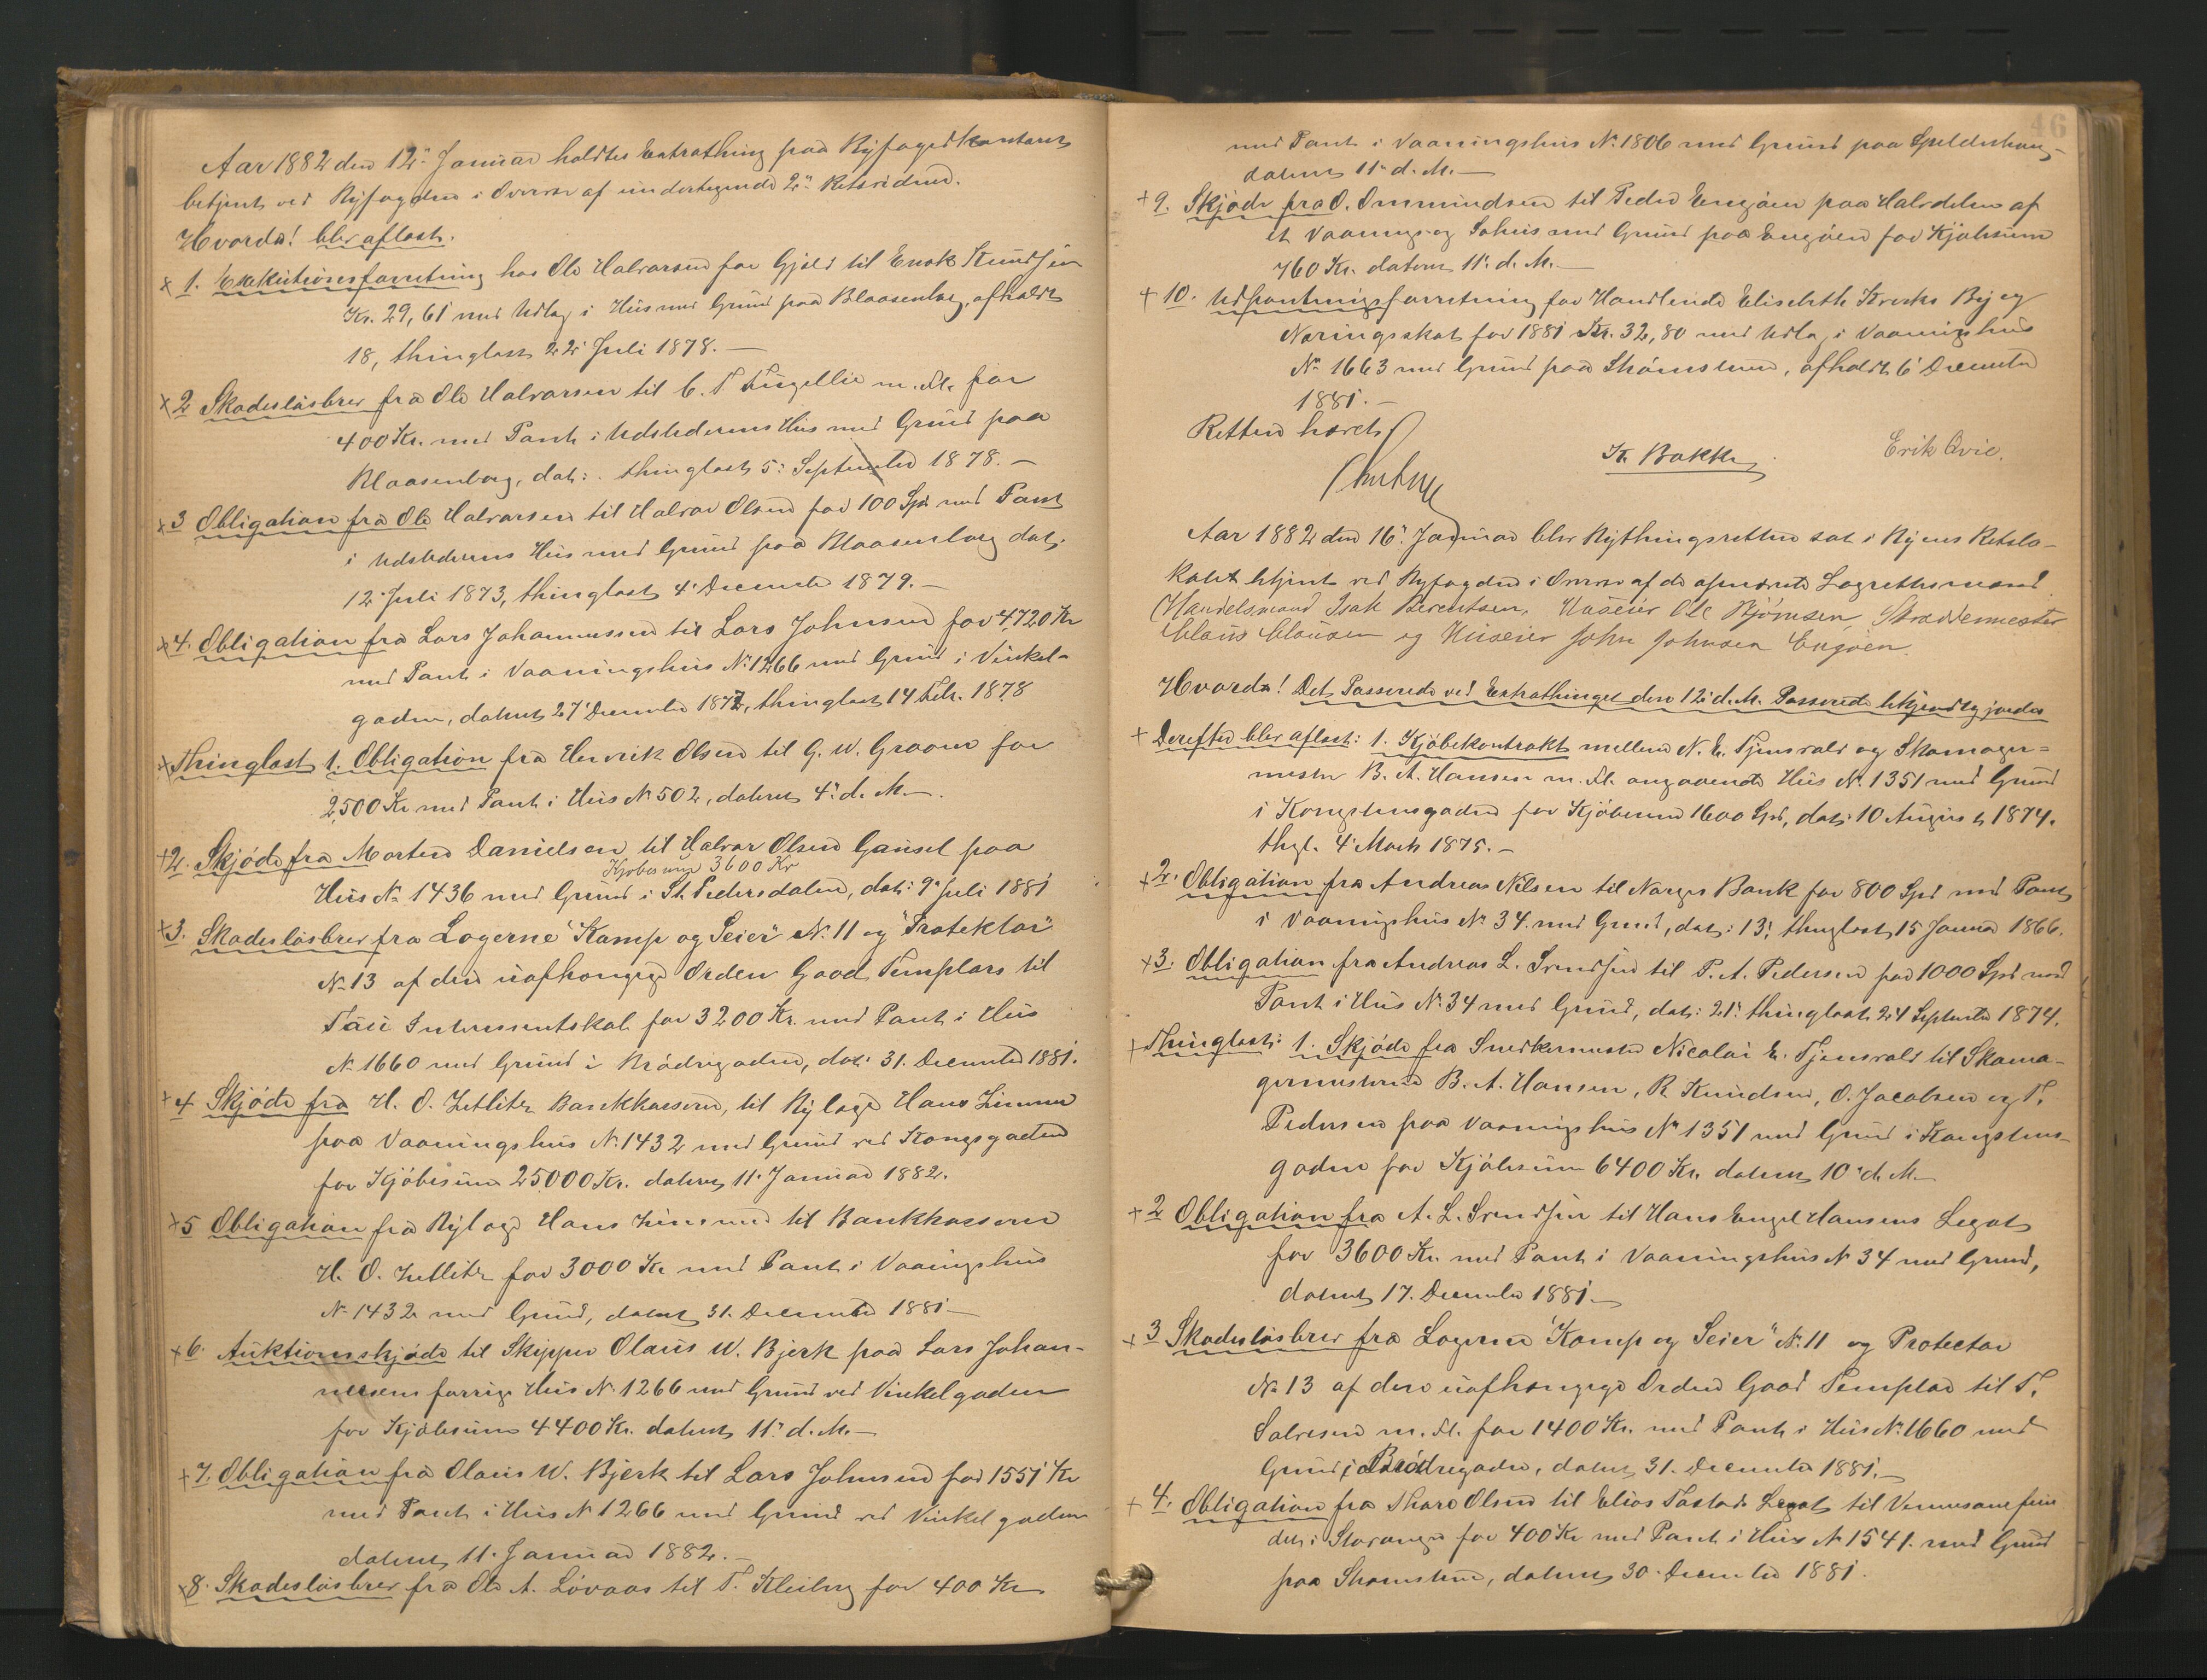 Aar 1882 den 12" Januar holdtes Extrathing paa Byfogedkontoret
betjent ved Byfogden i Overvær af undertegnede 2" Retsvidner.
Hvorda! blev aflæst.
x 1. Exekutionsforretning hos Ole Halvorsen for Gjæld til Enok Knudsen
Kr. 29,61 med Udlæg i Huus med Grund paa Blaasenborg, afholdt
18, thinglæst 22' Juli 1878. —
x 2 Skadesløsbrev fra Ole Halvorsen til C. T. m. Fl. for
400 Kr. med Pant i Udstederens Hus med Grund paa
Blaasenborg, dat: thinglæst 5: September 1878. —
x 3 Obligation fra Ole Halvorsen til Halvor Olsen for 100 Spd med Pant
i Udstederens Hus med Grund paa Blaasenborg dat.
12 Juli 1873, thinglæst 4' December 1879. —
x 4. Obligation fra Lars Johannessen til Lars Johnsen for 4720 Kr
med Pant i Vaaningshus No 1266 med Grund i Vinkel-
gaden, dateret 27' December 1877, thinglæst 14 Feb. 1878
x Thinglæst 1. Obligation fra Henrik Olsen til G. W. Groom for
2,500 Kr med Pant i Hus No 502, dateret 4" d. M. —
+2. Skjöde fra Morten Danielsen til Halvor Olsen Gausel paa
Kjøbesum 3600 Kr
Hus No 1436 med Grund i St. Pedersdalen, dat: 9' Juli 1881
+3. Skadesløsbrev fra Logerne "Kamp og Seier" No. 11 og "Protektor"
No 13 af den uafhængige Orden Good Templars til
Tau Interessentskab for 3200 Kr. med Pant i Hus
No 1660 med Grund i Brödregaden, dat: 31. December 1881.
+4 Skjöde fra H. O. Zetlitz Bankkasserer, til Bylæge Hans
paa Vaaningshus No 1432 med Grund ved Kongsgaden
for Kjöbesum 25000 Kr. dateret 11. Januar 1882.
x5 Obligation fra Bylæge Hans til Bankkasserer
H. O. Zetlitz for 3000 Kr med Pant i Vaaningshus
No 1432 med Grund, dateret 31. December 1881 —
x6. Auktionsskjöde til Skipper Olaus W. Bjerk paa Lars Johan-
nesens forrige Hus No 1266 med Grund ved Vinkelgaden
for Kjöbesum 4400 Kr. dateret 11" d. M. —
+7. Obligation fra Olaus W. Bjerk til Lars Johnsen for 1551 Kr
med Pant i Hus No 1266 med Grund ved Vinkelgaden
dateret 11. Januar 1882. —
x8. Skadesløsbrev fra Ole A. Lövaas til T. Kleiberg for 400 Kr
46
med Pant i Vaaningshus No 1806 med Grund paa Spilderhaug,
dateret 11" d. M. —
+9. Skjöde fra O. Ommundsen til Peder Engöen paa Halvdelen af
et Vaanings og Söhus med Grund paa Engöen for Kjöbesum
760 Kr. dateret 11' d. M. —
+10. Udpantningsforretning for Handlende Elisebeth By og
Næringsskat for 1881 Kr. 32,80 med Udlæg i Vaaningshus
No 1663 med Grund paa Strömsteen, afholdt 6' December
1881. —
Retten hævet
K. Bakke
Erik Qvie.
Aar 1882 den 16" Januar blev Bythingsretten sat i Byens Retslo-
kale betjent ved Byfogden i Overvær af de opnævnte Lagrettesmænd
Handelsmand Isak Berentsen, Huseier Ole Björnsen, Skræddermester
Claus Clausen og Huseier John Johnsen Engöen.
Hvorda! Det Passerede ved Extrathinget den 12' d. M. Passerede bekjendtgjordes
+ Derefter blev aflæst: 1. Kjöbekontrakt mellem N. E. Tjensvold og Skomager-
mester B. A. Hansen m. Fl. angaaende Hus No 1351 med Grund
i Kongsteensgaden for Kjöbesum 1600 Spd, dat: 10 August 1874.
thgl. 4' Marts 1875. —
+2. Obligation fra Andreas Nilsen til Norges Bank for 800 Spd med Pant
i Vaaningshus No 34. med Grund, dat: 13', thinglæst 15 Januar 1866.
+3. Obligation fra Andreas L. Svendsen til P. A. Pedersen for 1000 Spd med
Pant i Hus No 34 med Grund, dat: 21' thinglæst 24 September 1874.
+ Thinglæst: 1. Skjöde fra Snedkermester Nicolai E. Tjensvold til Skoma-
germesterne B. A. Hansen, R Knudsen, O. Jacobsen og T.
Pedersen paa Vaaningshus No 1351 med Grund i Kongsteens-
gaden for Kjöbesum 6400 Kr. dateret 10" d. M. —
+2 Obligation fra A. L. Svendsen til Hans Engel Hansens Legat
for 3600 Kr. med Pant i Vaaningshus No 34 med Grund,
dateret 17. December 1881. —
+3 Skadesløsbrev fra Logerne "Kamp og Seier" No. 11 og Protector
No 13 af den uafhængige Orden Good Templar til T.
Salvesen m. Fl. for 1400 Kr. med Pant i Hus No. 1660 med
Grund i Brödregaden, dateret 31. December 1881. —
+4. Obligation fra Thore Olsen til Elias Tastads Legat til
i Stavanger for 400 Kr med Pant i Hus No 1541. med Grund
paa Strömsteen, dateret 30. December 1881.